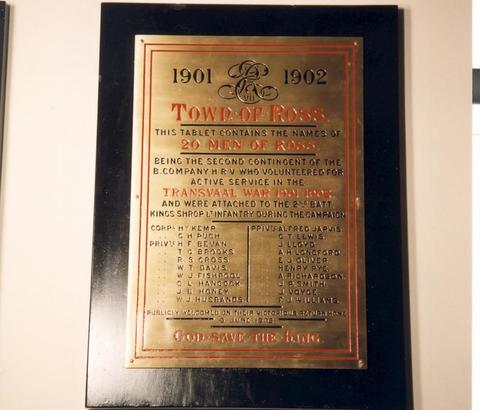 1901 1902
TOWN OF ROSS.
THIS TABLET CONTAINS THE NAMES OF
20 MEN OF ROSS,
BEING THE SECOND CONTINGENT OF THE
B. COMPANY H R V WHO VOLUNTEERED FOR
ACTIVE SERVICE IN THE
TRANSVAAL WAR 1901-1902
AND WERE ATTACHED TO THE 2ND BATT
KINGS SHROP LT INFANTRY DURING THE CAMPAIGN
CORPL HY KEMP.
G H PUGH
PRIVTE H F BEVAN.
T G BROOKS
R S CROSS.
W T DAVIS.
W J FISHPOOL
C L HANCOCK
J B HONEY
W J HUSBANDS.
PRIVTE ALFRED JARVIS.
C T LEWIS.
J LLOYD.
A H LONGFORD.
E J OLIVER
HENRY RYE.
A RICHARDSON.
J P SMITH.
J VOYCE.
F J WILLIAMS.
PUBLICLY WELCOMED ON THEIR VICTORIOUS RETURN HOME
JUNE 1902
GOD SAVE THE KING.